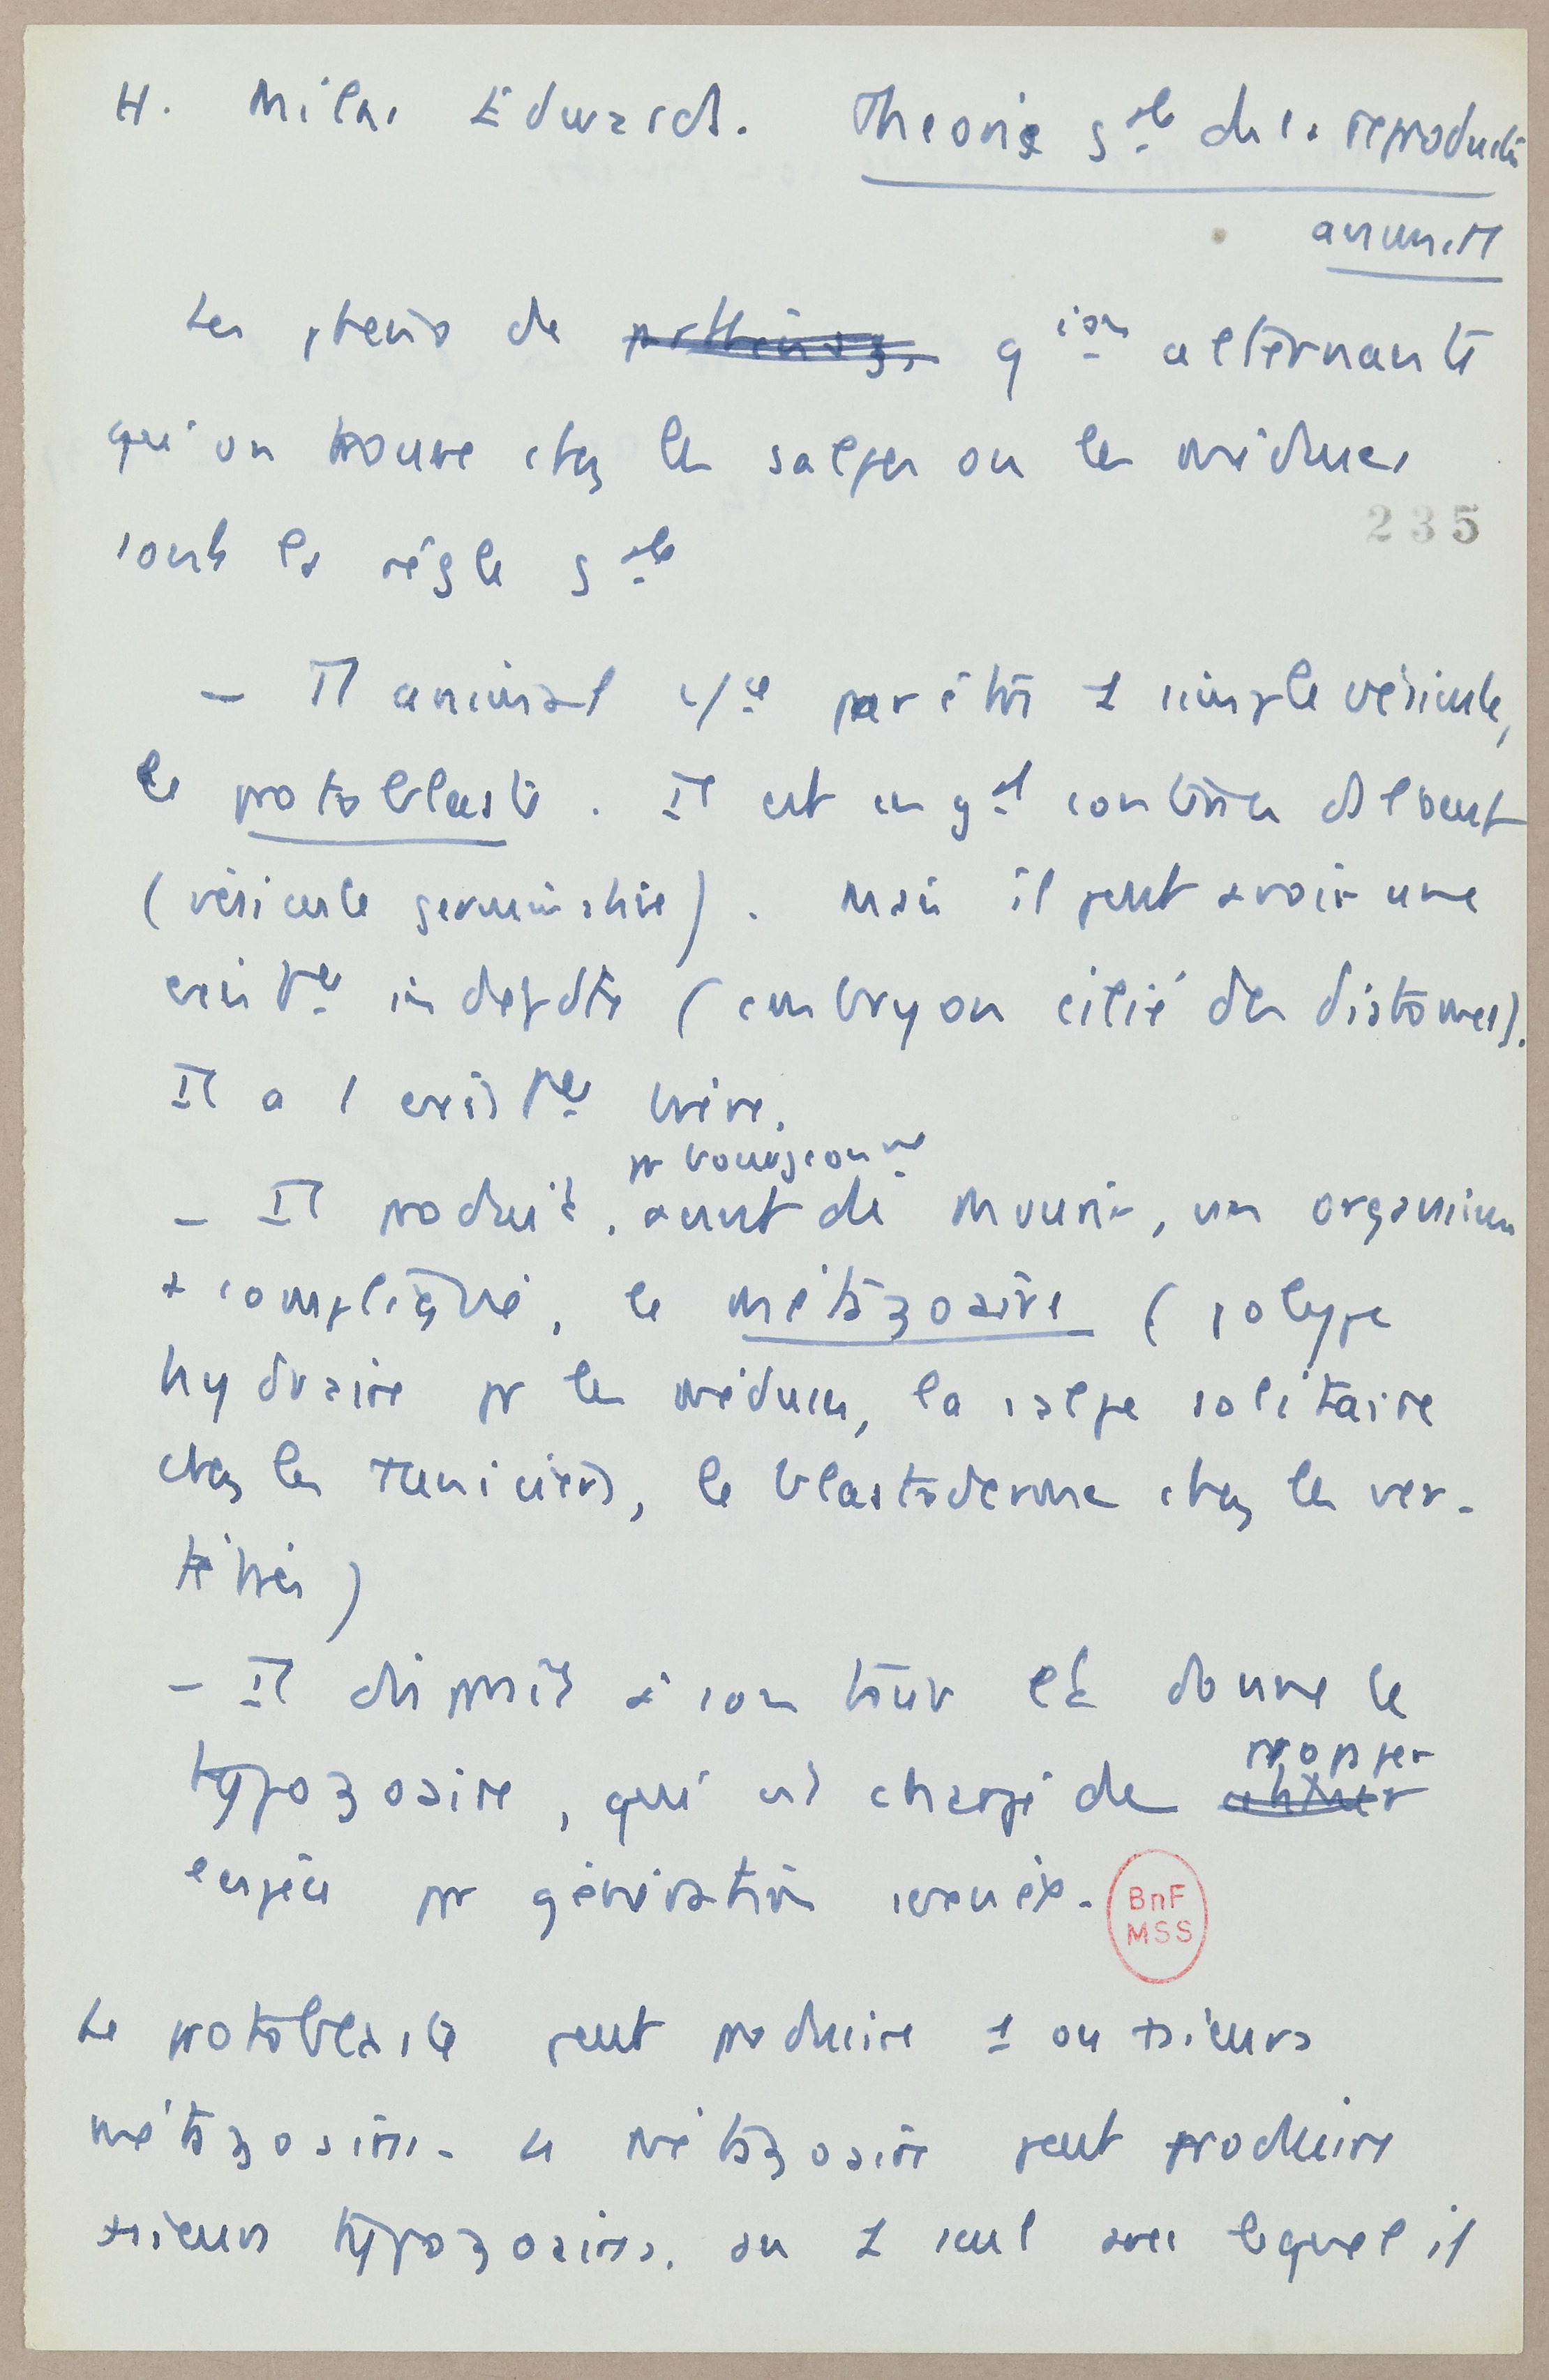 H. Milne Edwards. Theorie gale de la reproduction
animale
Les phenos de parthénog. gion alternante
qu'on trouve chez les salpes ou les méduses
sont la règle gale
235
— Tt animal c/ce par être 1 simple vésicule,
le protoblaste. Il est en gal contenu ds l'oeuf
(vésicule germinative). Mais il peut avoir une
existce indepdte (embryon cilié des distomes).
Il a 1 existce brève.
pr bourgeonnt
— Il produit, avant de mourir, un organisme
+ compliqué, le métazoaire (polype
hydraire pr les méduses, la salpe solitaire
chez les Tuniciers, le blastoderme chez les ver-
tébrés)
— Il disparaît à son tour et donne le
propager
typozoaire, qui est chargé de
l'espèce par génération sexuée.
BnF
MSS
Le protoblaste peut produire 1 ou +sieurs
métazoaires. Le métazoaire peut produire
+sieurs typozoaires, ou 1 seul avec lequel il